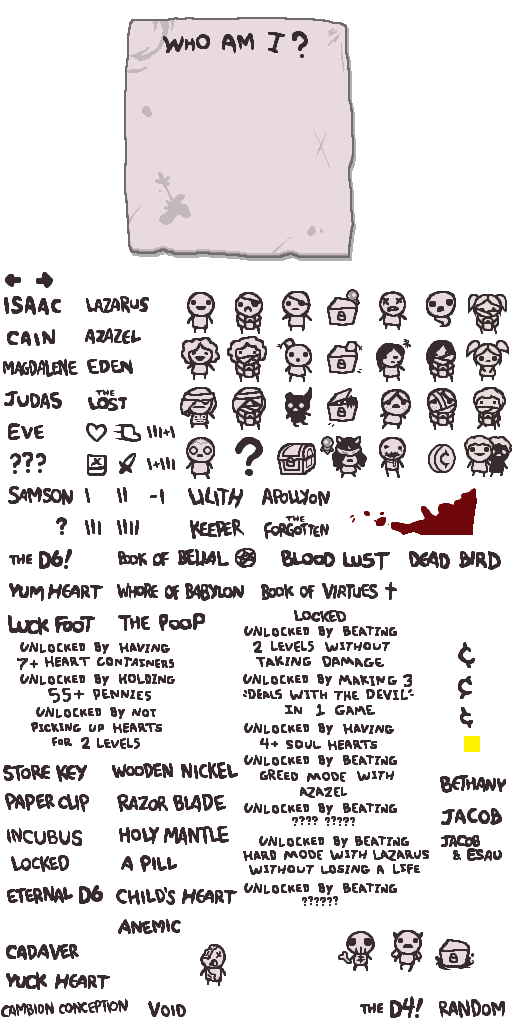 WHO AM I?
ISAAC LAZARUS
CAIN AZAZEL
MAGDALENE EDEN
JUDAS THE LOST
EVE III+I
??? I+III
?
SAMSON I II -I LILITH APOLLYON
? III IIII KEEPER THE FORGOTTEN
THE D6! BOOK OF BELIAL BLOOD LUST DEAD BIRD
YUM HEART WHORE OF BABYLON BOOK OF VIRTUES
LUCK FOOT THE POOP
UNLOCKED BY HAVING
7+ HEART CONTAINERS
UNLOCKED BY HOLDING
55+ PENNIES
UNLOCKED BY NOT
PICKING UP HEARTS
FOR 2 LEVELS
LOCKED
UNLOCKED BY BEATING
2 LEVELS WITHOUT
TAKING DAMAGE
UNLOCKED BY MAKING 3
"DEALS WITH THE DEVIL"
IN 1 GAME
UNLOCKED BY HAVING
4+ SOUL HEARTS
UNLOCKED BY BEATING
GREED MODE WITH
AZAZEL
UNLOCKED BY BEATING
???? ?????
UNLOCKED BY BEATING
HARD MODE WITH LAZARUS
WITHOUT LOSING A LIFE
UNLOCKED BY BEATING
??????
¢
¢
¢
STORE KEY WOODEN NICKEL
PAPER CLIP RAZOR BLADE
INCUBUS HOLY MANTLE
LOCKED A PILL
ETERNAL D6 CHILD'S HEART
ANEMIC
BETHANY
JACOB
JACOB
& ESAU
CADAVER
YUCK HEART
CAMBION CONCEPTION VOID THE D4! RANDOM